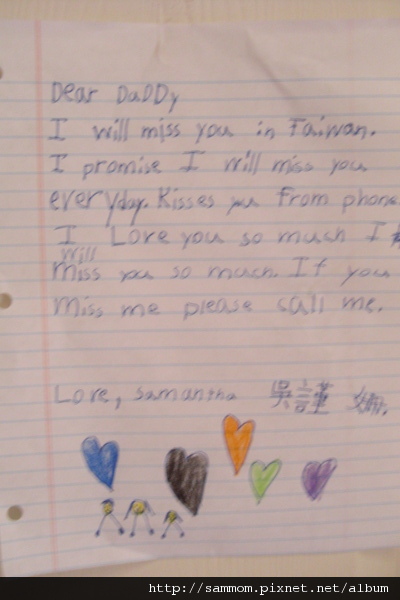 Dear DaDDy
I will miss you in Taiwan.
I promise I will miss you
everyday. Kisses you from phone.
I Love you so much I
will
miss you so much. If you
miss me please call me.
Love, Samantha 吳謹
http://sammom.pixnet.net/album